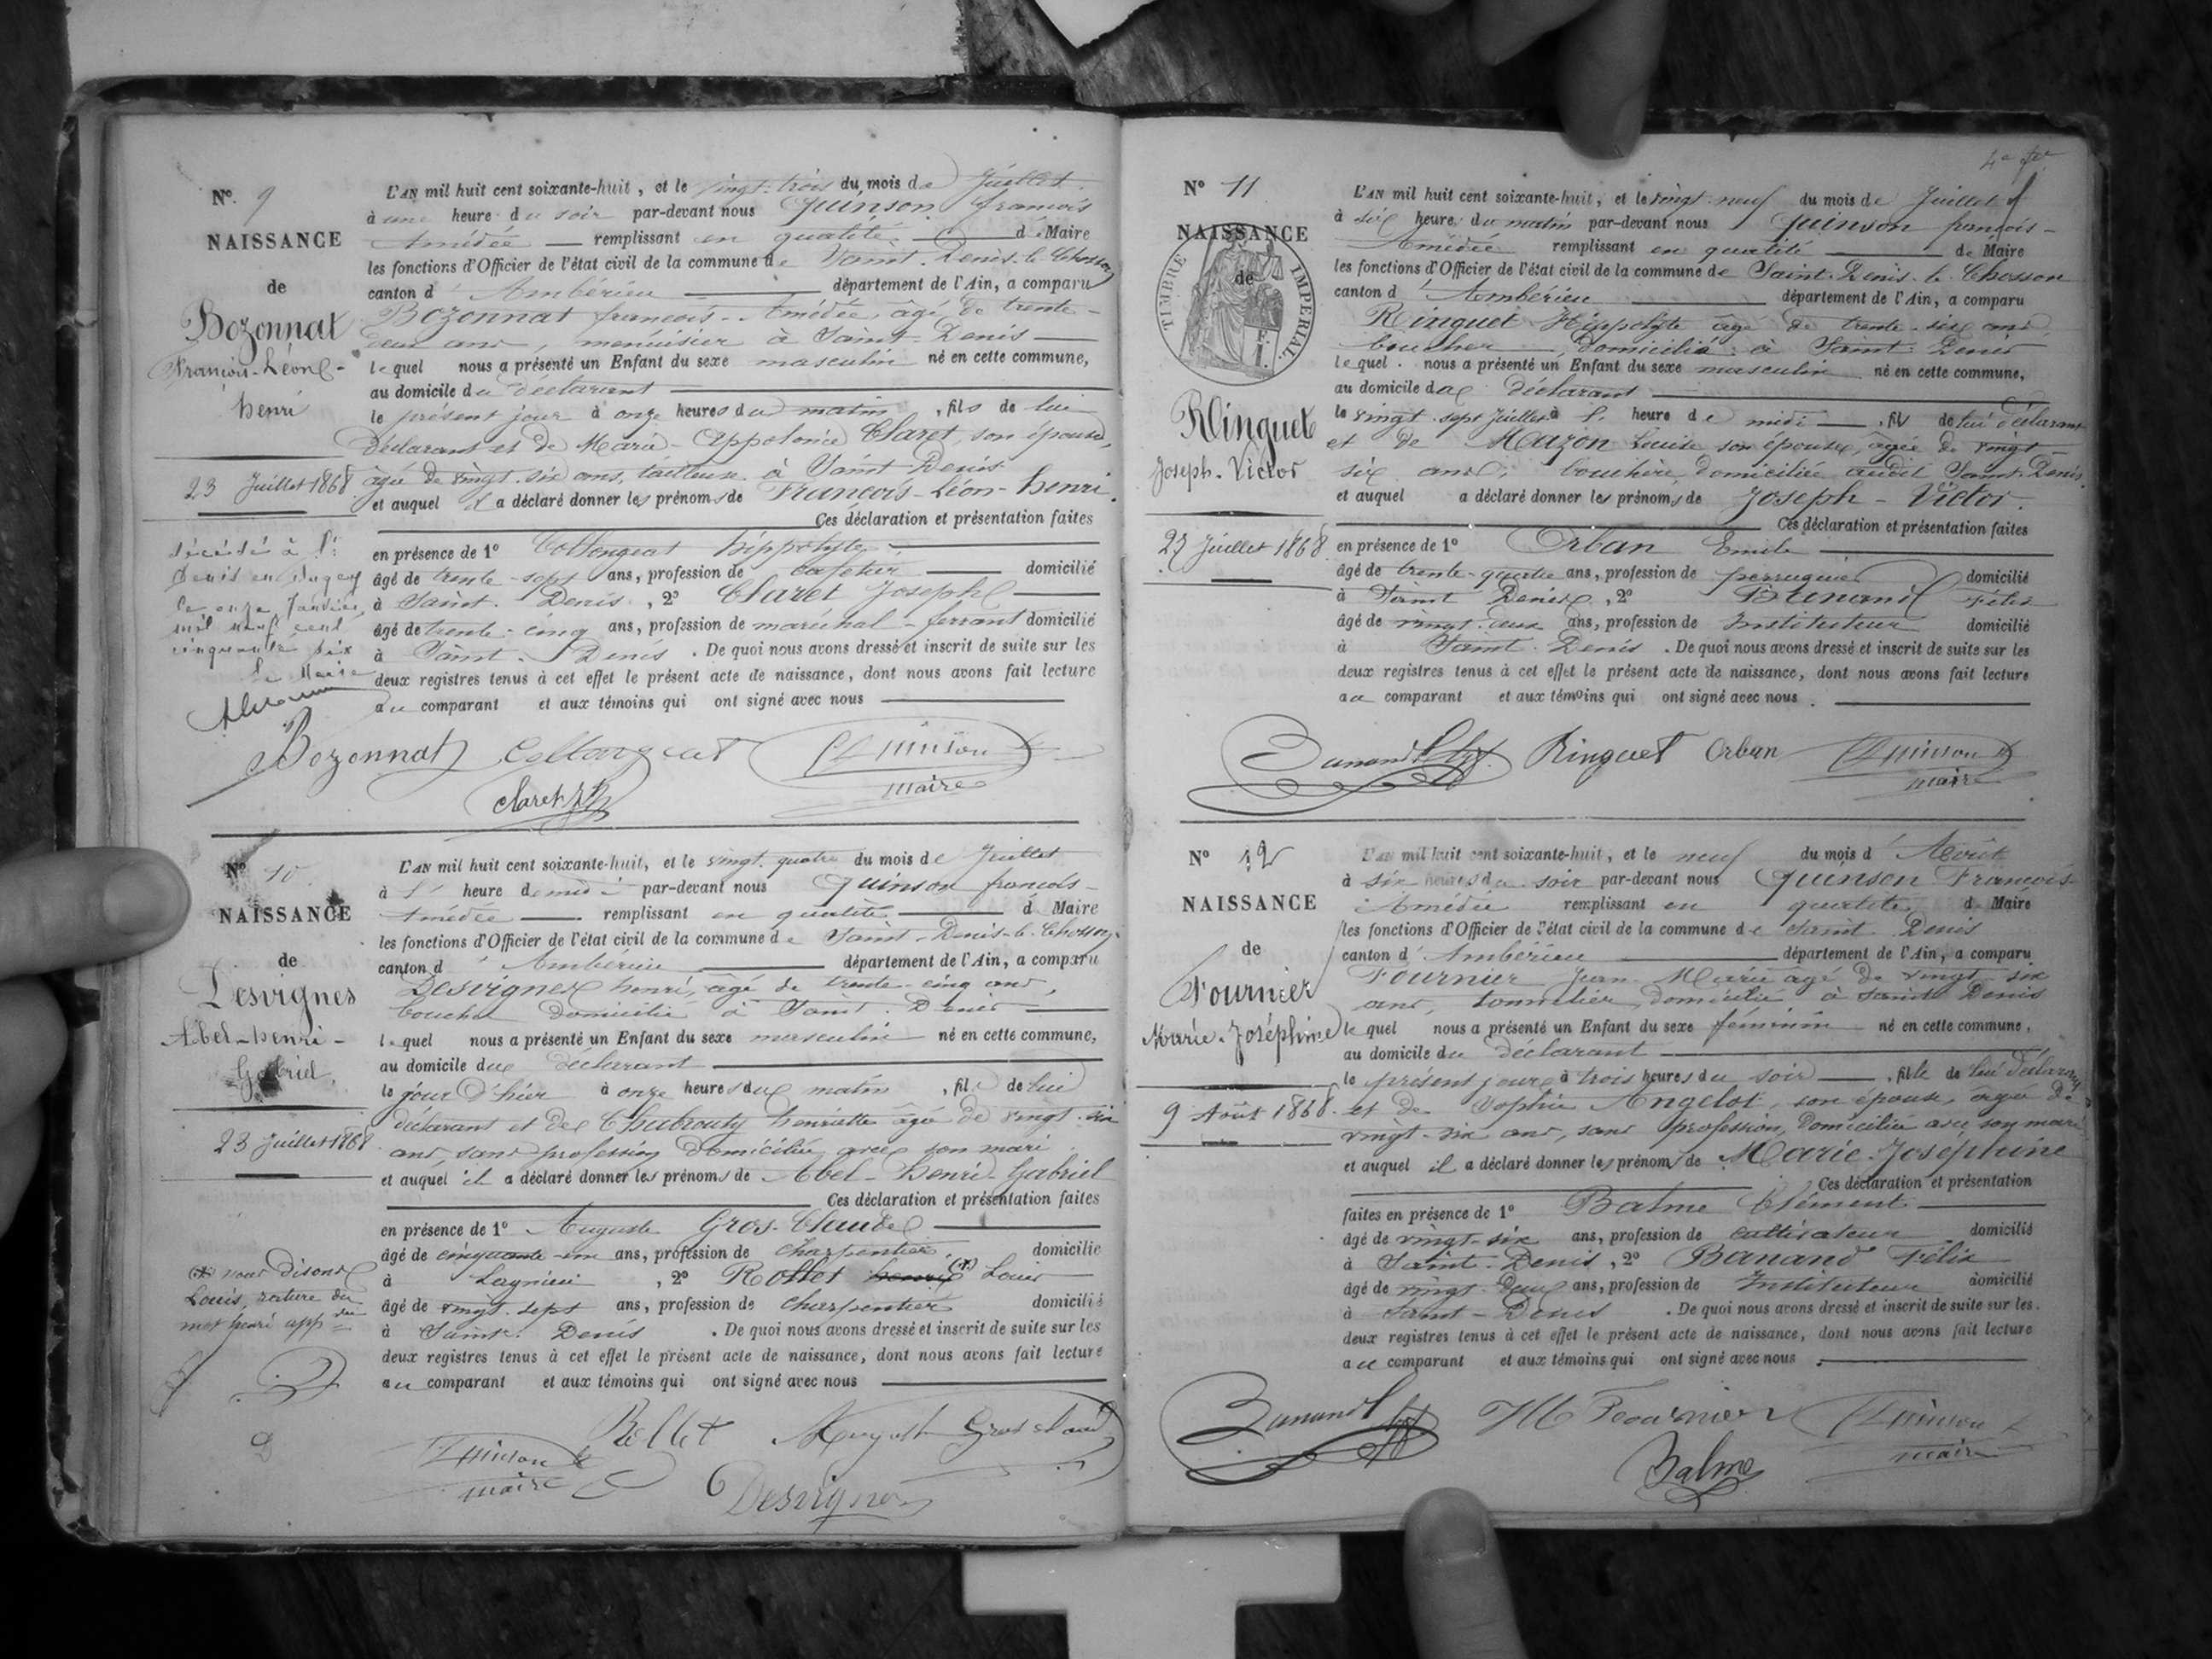 N° 9
NAISSANCE
de
Bozonnat
François-Léon-
henri
23 Juillet 1868
décédé à St
Denis en Bugey
le onze Janvier
mil neuf cent
cinquante six
Le Maire
L'AN mil huit cent soixante-huit, et le vingt-trois du mois de Juillet
à une heure du soir par-devant nous Quinson françois
Amédée remplissant en qualité de Maire
les fonctions d'Officier de l'état civil de la commune de Saint-Denis-le-Chosson
canton d'Ambérieu département de l'Ain, a comparu
Bozonnat françois-Amédée, âgé de trente-
deux ans, menuisier à Saint-Denis
lequel nous a présenté un Enfant du sexe masculin né en cette commune,
au domicile du déclarant
le présent jour à onze heures du matin, fils de lui
déclarant et de Marie-Appolonie Claret, son épouse,
âgée de vingt-six ans, tailleuse à Saint-Denis
et auquel il a déclaré donner les prénoms de François-Léon-henri.
Ces déclaration et présentation faites
en présence de 1° Collongeat hippolyte
âgé de trente-sept ans, profession de cafetier domicilié
à Saint-Denis, 2° Claret Joseph
âgé de trente-cinq ans, profession de maréchal-ferrant domicilié
à Saint-Denis. De quoi nous avons dressé et inscrit de suite sur les
deux registres tenus à cet effet le présent acte de naissance, dont nous avons fait lecture
au comparant et aux témoins qui ont signé avec nous
Bozonnat Collongeat Quinson
Claret maire
N° 10
NAISSANCE
de
Desvignes
Abel-henri-
Gabriel
23 Juillet 1868
(x) nous disons
Louis, rature du
mot henri app
L'AN mil huit cent soixante-huit, et le vingt-quatre du mois de Juillet
à l' heure de midi par-devant nous Quinson françois-
Amédée remplissant en qualité d Maire
les fonctions d'Officier de l'état civil de la commune de Saint-Denis-le-Chosson
canton d'Ambérieu département de l'Ain, a comparu
Desvignes henri, âgé de trente-cinq ans,
boucher domicilié à Saint-Denis
lequel nous a présenté un Enfant du sexe masculin né en cette commune,
au domicile du déclarant
le jour d'hier à onze heures du matin, fils de lui
déclarant et de Chabrouty henriette âgée de vingt-six
ans, sans profession domiciliée avec son mari
et auquel il a déclaré donner les prénoms de Abel-henri-Gabriel
Ces déclaration et présentation faites
en présence de 1° Auguste Gros-Claude
âgé de cinquante-un ans, profession de charpentier, domicilié
à Lagnieu, 2° Rollet henri (x) Louis
âgé de vingt-sept ans, profession de charpentier domicilié
à Saint-Denis. De quoi nous avons dressé et inscrit de suite sur les
deux registres tenus à cet effet le présent acte de naissance, dont nous avons fait lecture
au comparant et aux témoins qui ont signé avec nous
Rollet August Gros Claud
Quinson
maire
Desvignes
N° 11
NAISSANCE
de
TIMBRE IMPERIAL
Ringuet
Joseph-Victor
27 Juillet 1868
L'AN mil huit cent soixante-huit, et le vingt-neuf du mois de Juillet
à six heure du matin par-devant nous Quinson françois-
Amédée remplissant en qualité de Maire
les fonctions d'Officier de l'état civil de la commune de Saint-Denis-le-Chosson
canton d'Ambérieu département de l'Ain, a comparu
Ringuet Hippolyte âgé de trente-six ans,
boucher, domicilié à Saint-Denis
lequel nous a présenté un Enfant du sexe masculin né en cette commune,
au domicile du déclarant
le vingt-sept Juillet à l' heure de midi, fils de lui déclarant
et de Mazon Louise son épouse, âgée de vingt-
six ans, bouchère, domiciliée audit Saint-Denis.
et auquel a déclaré donner les prénoms de Joseph-Victor.
Ces déclaration et présentation faites
en présence de 1° Orban Emile
âgé de trente-quatre ans, profession de perruquier domicilié
à Saint Denis, 2° Bunand Félix
âgé de vingt-deux ans, profession de Instituteur domicilié
à Saint-Denis. De quoi nous avons dressé et inscrit de suite sur les
deux registres tenus à cet effet le présent acte de naissance, dont nous avons fait lecture
au comparant et aux témoins qui ont signé avec nous.
Bunand Ringuet Orban Quinson
maire
N° 12
NAISSANCE
de
Fournier
Marie-Joséphine
9 Août 1868
L'AN mil huit cent soixante-huit, et le neuf du mois d'Août
à six heures du soir par-devant nous Quinson François-
Amédée remplissant en qualité d Maire
les fonctions d'Officier de l'état civil de la commune de Saint-Denis
canton d'Ambérieu département de l'Ain, a comparu
Fournier Jean-Marie âgé de vingt-six
ans, tonnelier, domicilié à Saint-Denis
lequel nous a présenté un Enfant du sexe féminin né en cette commune,
au domicile du déclarant
le présent jour à trois heures du soir, fille de lui déclarant
et de Sophie Angelot, son épouse, âgée de
vingt-six ans, sans profession, domiciliée avec son mari
et auquel il a déclaré donner les prénoms de Marie-Joséphine
Ces déclaration et présentation
faites en présence de 1° Balme Clément
âgé de vingt-six ans, profession de cultivateur domicilié
à Saint-Denis, 2° Bunand Félix
âgé de vingt-deux ans, profession de Instituteur domicilié
à Saint-Denis. De quoi nous avons dressé et inscrit de suite sur les
deux registres tenus à cet effet le présent acte de naissance, dont nous avons fait lecture
au comparant et aux témoins qui ont signé avec nous
Bunand JM Fournier Quinson
Balme maire